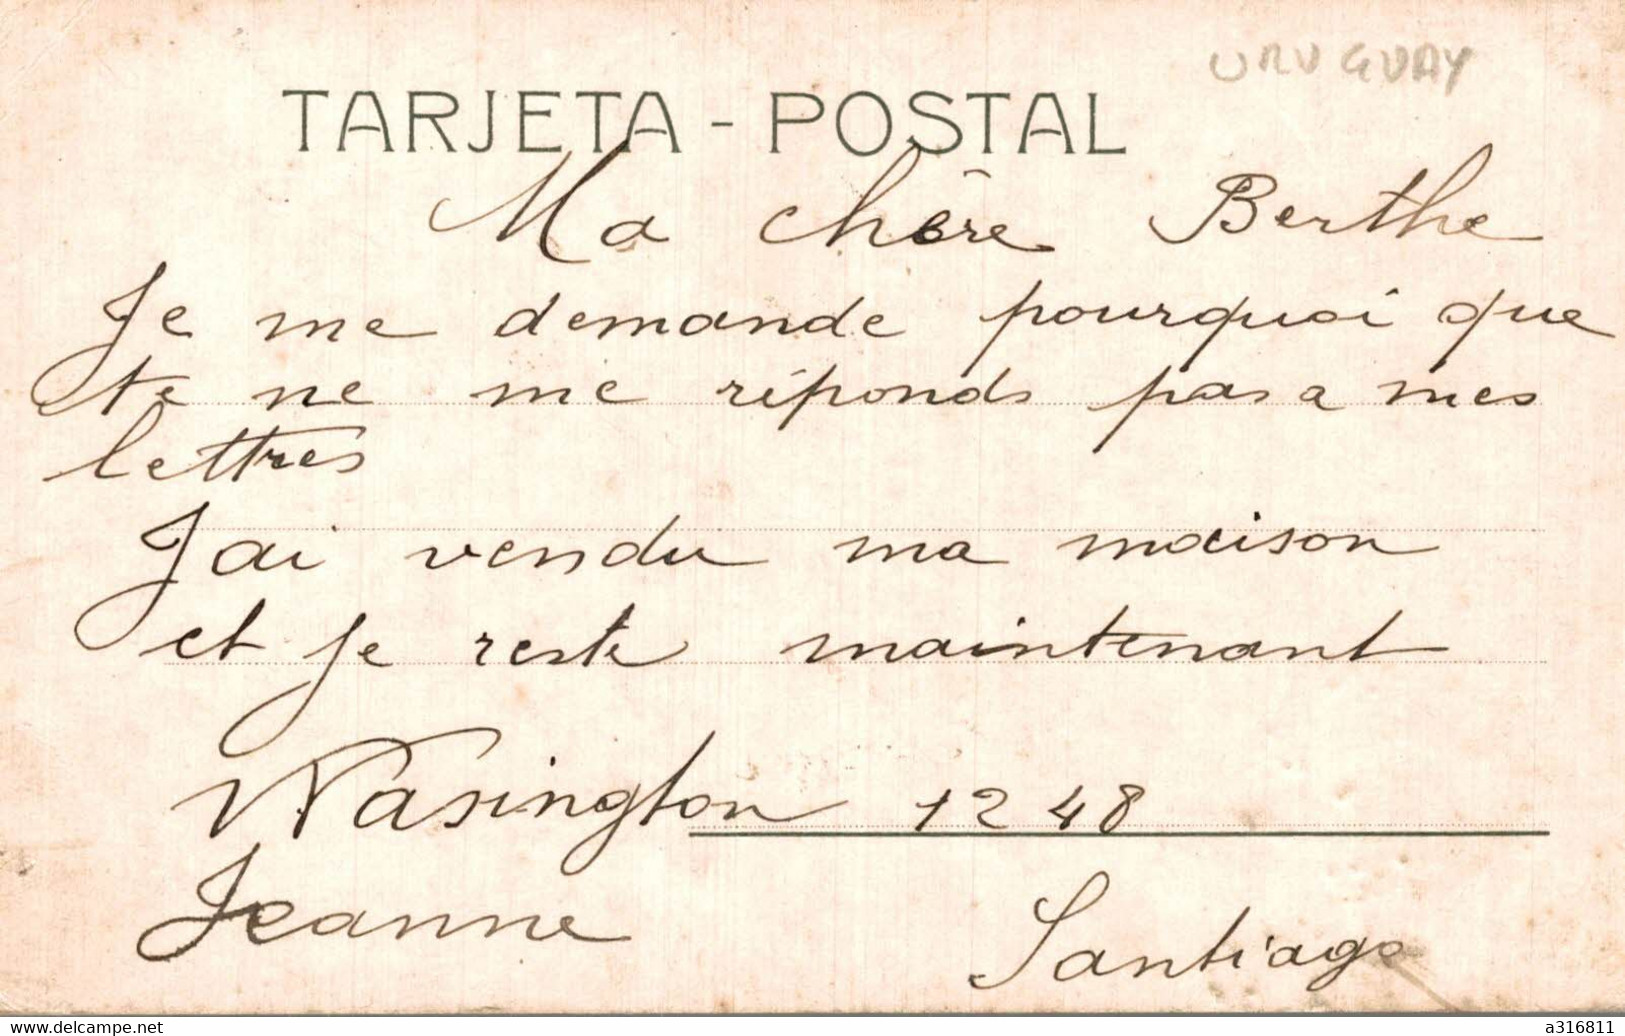 URUGUAY
TARJETA - POSTAL
Ma chère Berthe
Je me demande pourquoi que
te ne me réponds pas a mes
lettres
Jai vendu ma maison
et je reste maintenant
Wasington 1248
Jeanne Santiago
www.delcampe.net
a316811